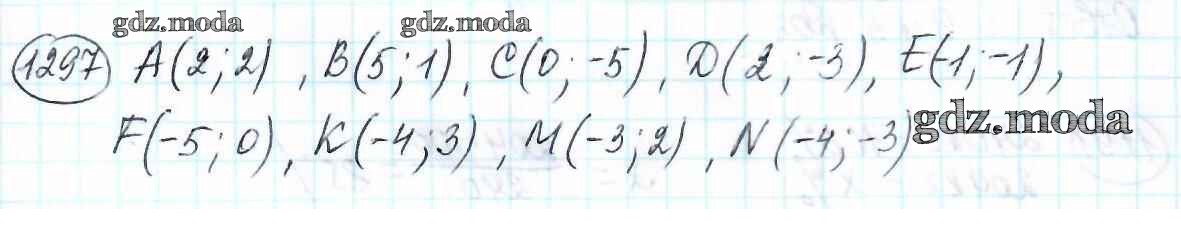 gdz.moda gdz.moda
1297 A(2;2), B(5;1), C(0;-5), D(2;-3), E(-1;-1),
F(-5;0), K(-4;3), M(-3;2), N(-4;-3) gdz.moda